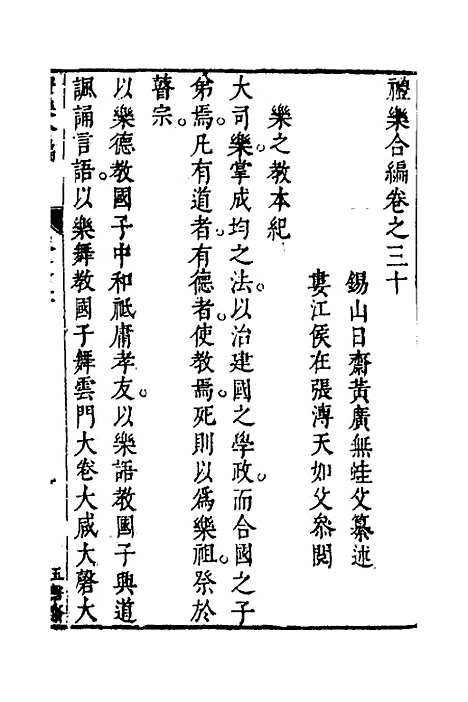 禮樂合編卷之三十
錫山日齋黃廣無蛙父纂述
婁江侯在張溥天如父叅閱
樂之教本紀
大司樂掌成均之法。以治建國之學政。而合國之子
弟焉。凡有道者。有德者。使教焉。死則以爲樂祖。祭於
瞽宗。
以樂德教國子中和祗庸孝友。以樂語教國子興道
諷誦言語。以樂舞教國子舞雲門大卷大咸大磬大